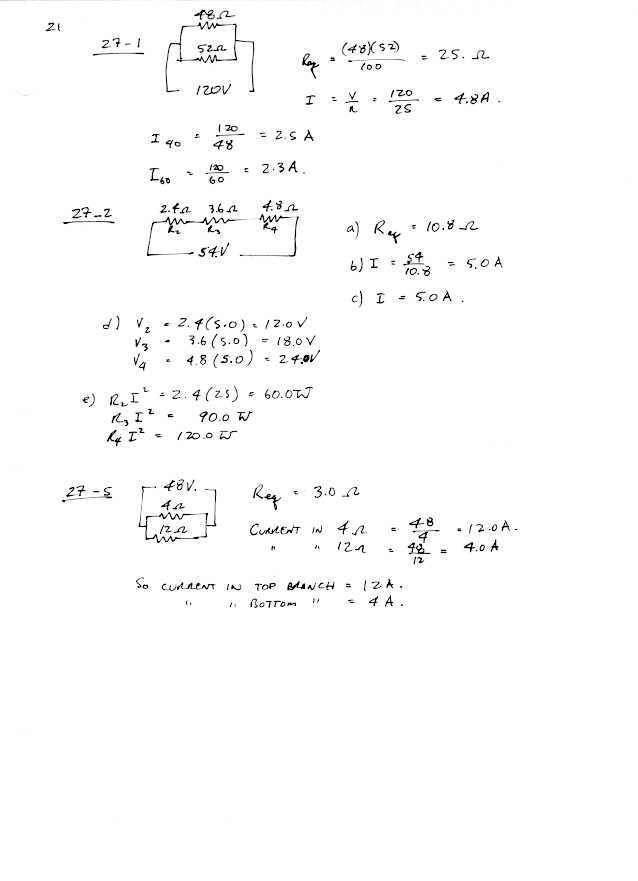 21
27-1
48Ω
52Ω
120V
Req = (48)(52)/100 = 25. Ω
I = V/R = 120/25 = 4.8A.
I40 = 120/48 = 2.5 A
I60 = 120/60 = 2.3A.
27-2
2.4Ω 3.6Ω 4.8Ω
R2 R3 R4
54V
a) Req = 10.8 Ω
b) I = 54/10.8 = 5.0 A
c) I = 5.0A.
d) V2 = 2.4(5.0) = 12.0V
V3 = 3.6(5.0) = 18.0V
V4 = 4.8(5.0) = 24.0V
e) R2I² = 2.4(25) = 60.0W
R3I² = 90.0 W
R4I² = 120.0 W
27-5
48V.
4Ω
12Ω
Req = 3.0 Ω
CURRENT IN 4Ω = 48/4 = 12.0A.
" " 12Ω = 48/12 = 4.0 A
So CURRENT IN TOP BRANCH = 12A.
" " BOTTOM " = 4A.